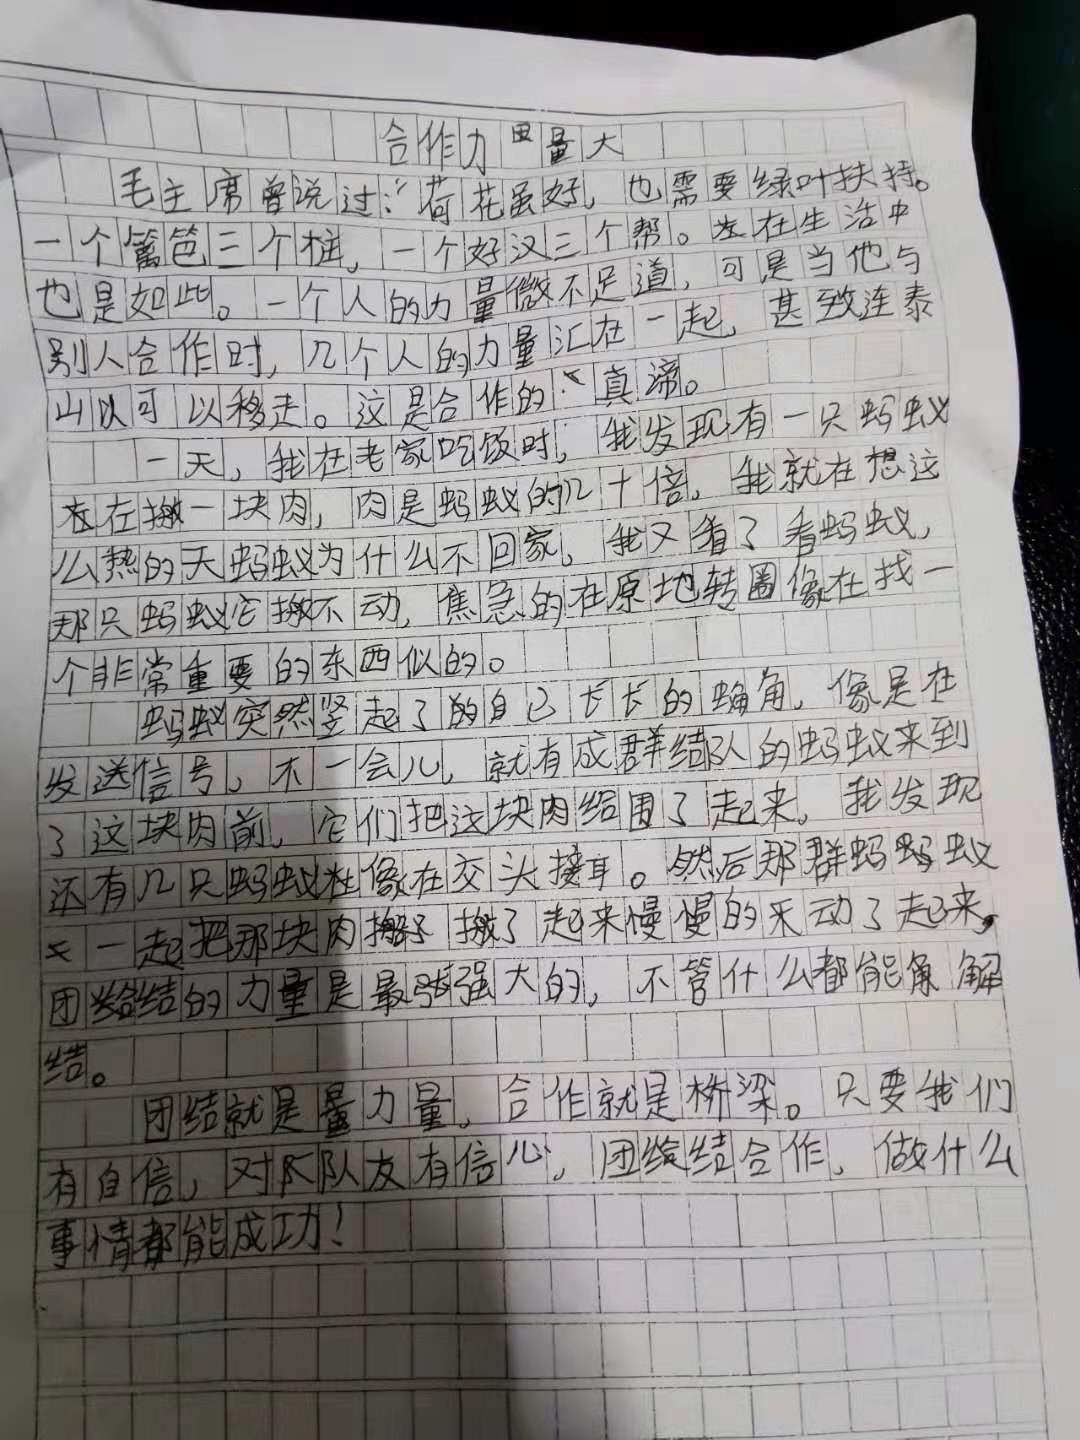 合作力量大
毛主席曾说过:“荷花虽好,也需要绿叶扶持。
一个篱笆三个桩,一个好汉三个帮。在生活中
也是如此。一个人的力量微不足道,可是当他与
别人合作时,几个人的力量汇在一起,甚致连泰
山以可以移走。这是合作的真谛。
一天,我在老家吃饭时,我发现有一只蚂蚁
在搬一块肉,肉是蚂蚁的几十倍,我就在想这
么热的天蚂蚁为什么不回家,我又看了看蚂蚁,
那只蚂蚁它搬不动,焦急的在原地转圈像在找一
个非常重要的东西似的。
蚂蚁突然竖起了自己长长的角,像是在
发送信号,不一会儿,就有成群结队的蚂蚁来到
了这块肉前,它们把这块肉给围了起来,我发现
还有几只蚂蚁像在交头接耳。然后那群蚂蚁
一起把那块肉搬了起来慢慢的动了起来,
团结的力量是最强大的,不管什么都能解
结。
团结就是力量,合作就是桥梁。只要我们
有自信,对队友有信心,团结合作,做什么
事情都能成功!